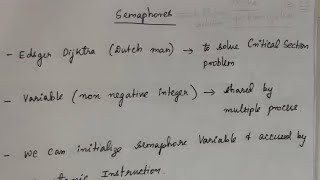 Semaphores
- Edsger Dijktra (Dutch man) → to solve Critical Section
problem
- Variable (non negative integer) → shared by
multiple process.
- We can initialize semaphore Variable & accused by
Instruction.